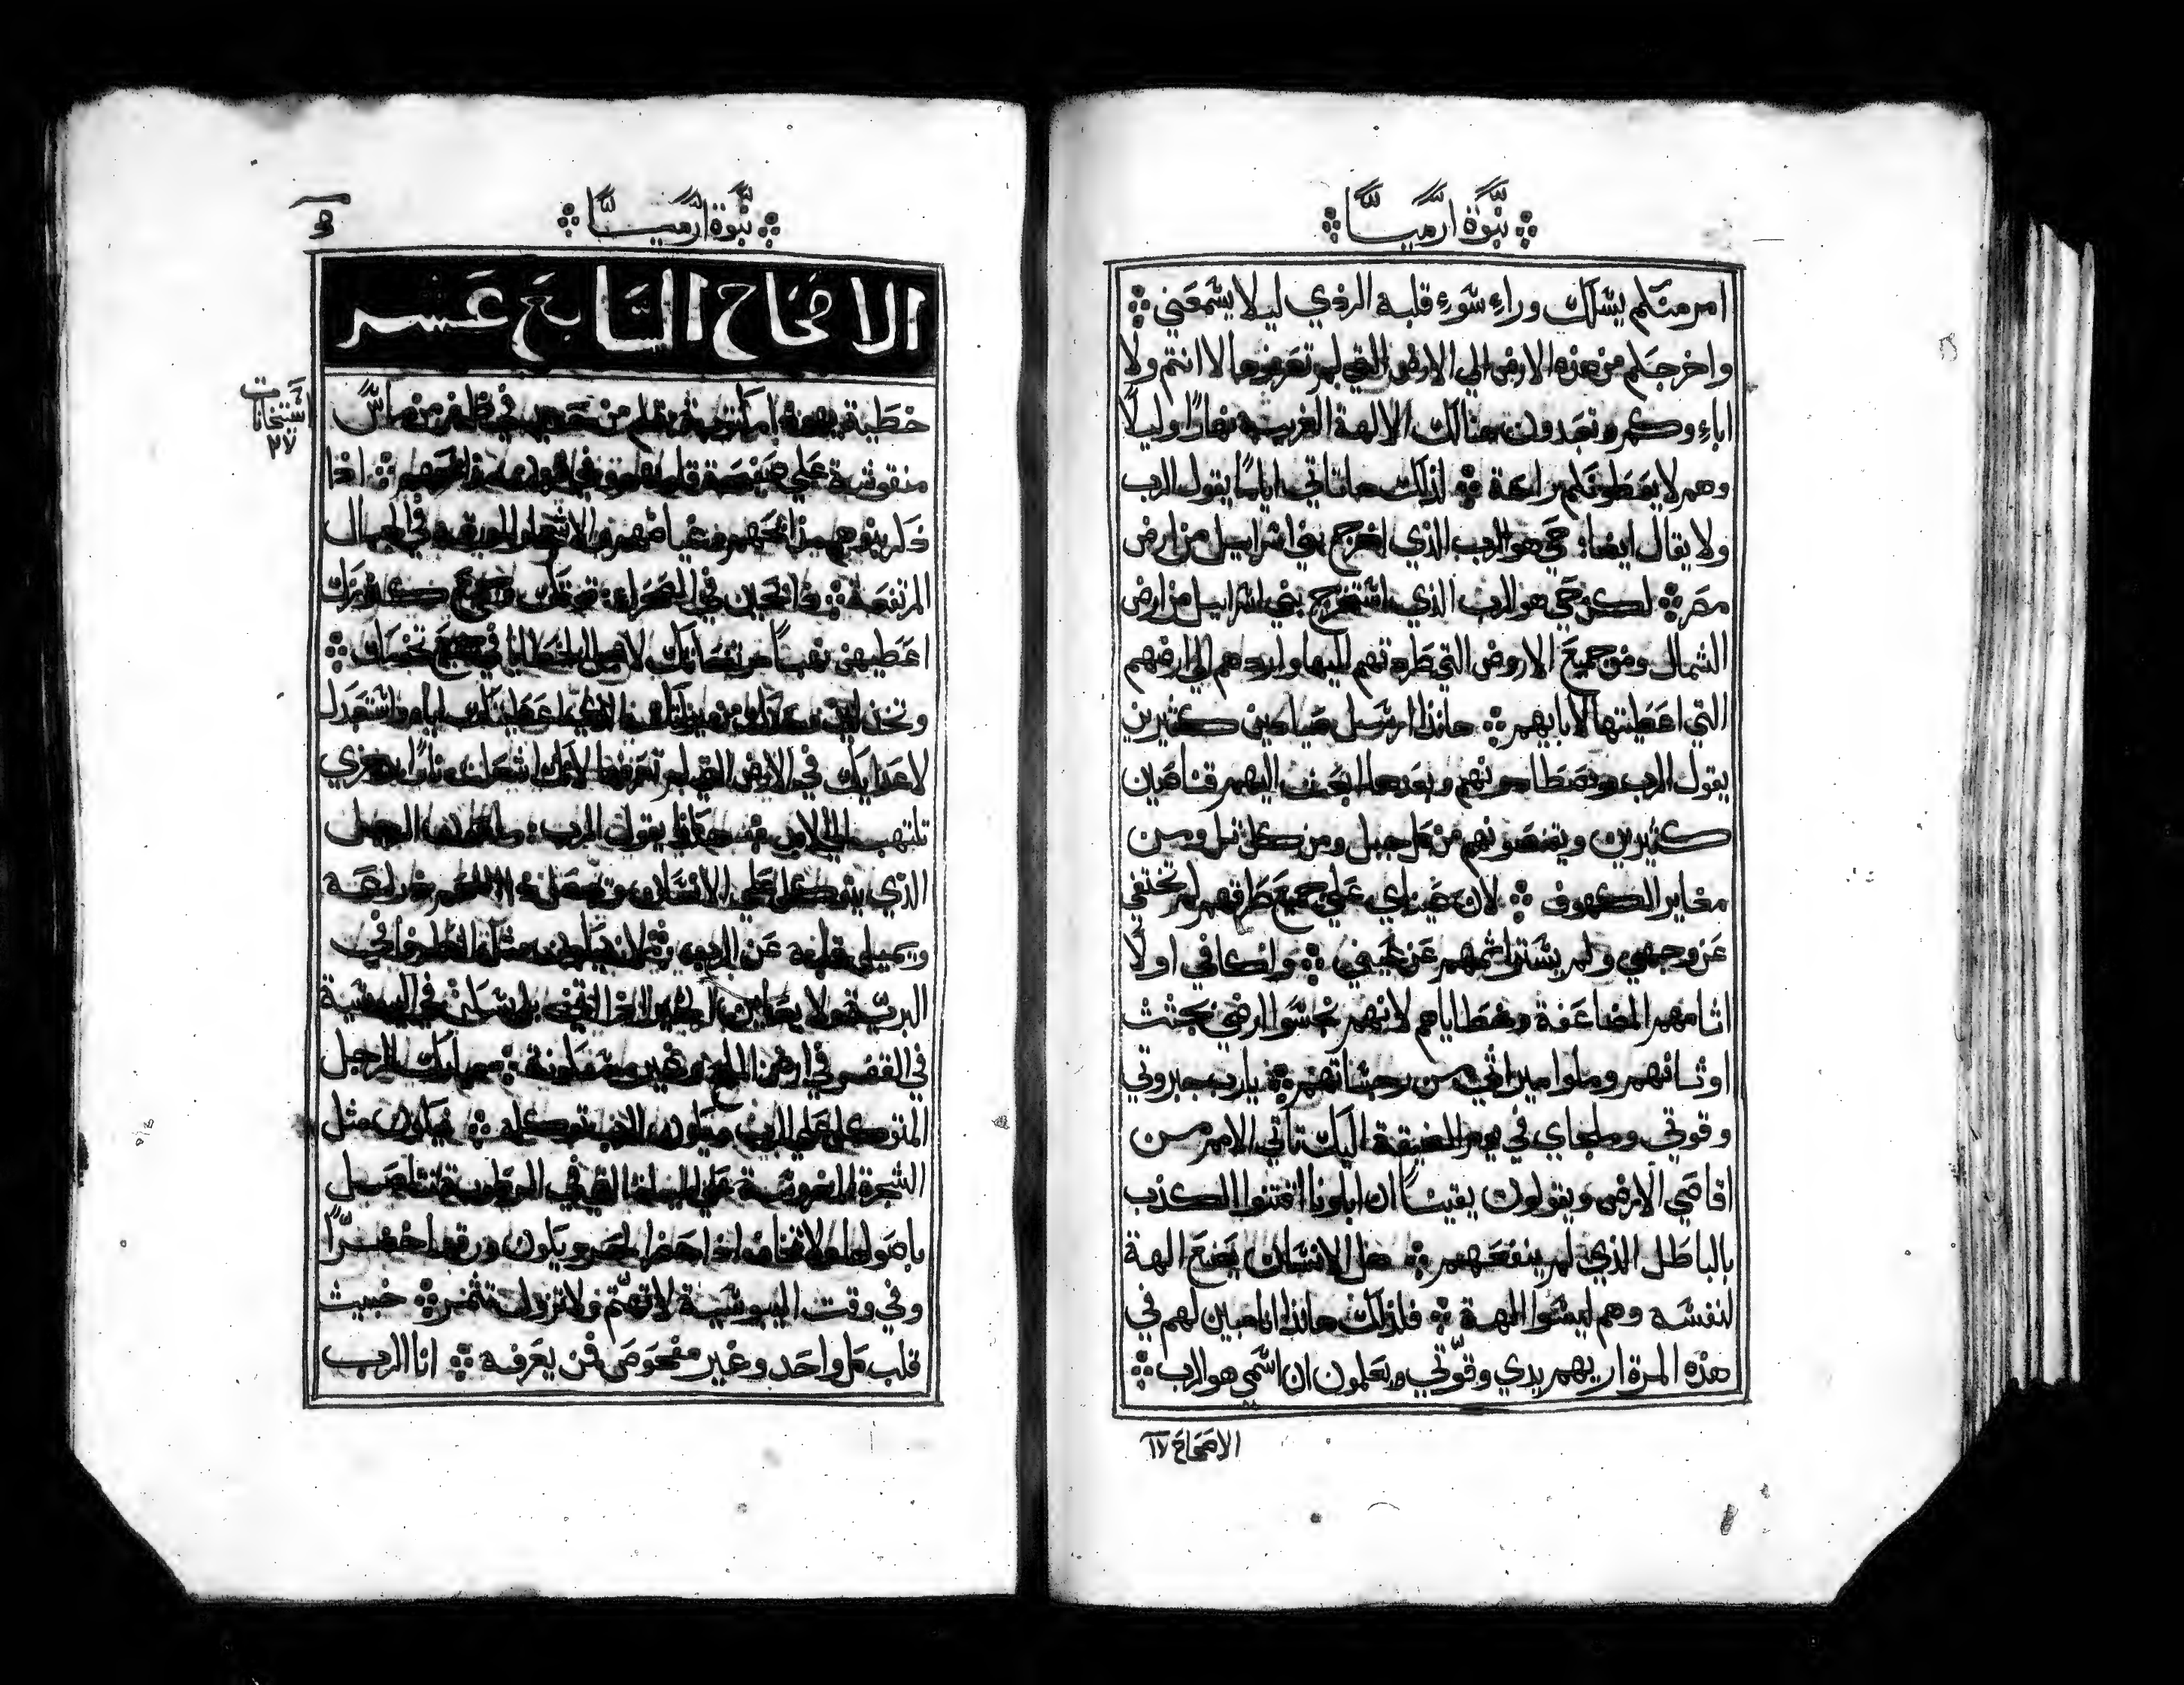 نبوة ارميا
امر منكم يسلك وراء سوء قلبه الردي ليلا يسمعني
واخرجكم من هذه الارض الي الارض التي لم تعرفوها لا انتم ولا
اباءوكم وتعبدون هنالك الالهة الغريبة نهارًا وليلًا
وهم لا يعطونكم راحة لذلك ها تاتي ايامًا يقول الرب
ولا يقال ايضا حي هو الرب الذي اخرج بني اسراييل من ارض
مصر لكن حي هو الرب الذي استخرج بني اسراييل من ارض
الشمال ومن جميع الاروض التي طردتهم اليها واردهم الي ارضهم
التي اعطيتها لابايهم هانذا ارسل صيادين كثيرين
يقول الرب ويصطادونهم وبعدها ابعث اليهم قناصين
كثيرين ويقنصونهم من كل جبل ومن كل تل ومن
مغاير الكهوف لان عيناي علي جميع طرقهم لم تختفي
عن وجهي ولم يستر اثمهم عن عيني واكافي اولًا
اثامهم المضاعفة وخطاياهم لانهم نجسوا ارضي بجثث
اوثانهم وملوا ميراثي من رجساتهم يارب جبروتي
وقوتي وملجاي في يوم الضيقة اليك تاتي الامم من
اقاصي الارض ويقولون يقينًا ان اباونا اقتنوا الكذب
بالباطل الذي لم ينفعهم هل الانسان يصنع الهة
لنفسه وهم ليسوا الهة فلذلك هانذا انا مبين لهم في
هذه المرة اريهم يدي وقوّتي ويعلمون ان اسمي هو الرب
الاصحاح ١٧
نبوة ارميا
الاصحاح السابع عشر
استخانات
٢٧
خطية يهوذا مكتوبة بقلم من حديد في ظفر من ماس
منقوشة علي صفحة قلبهم وفي قرون مذابحهم اذا
ذكر بنوهم مذابحهم وغياضهم والاشجار المورقة في الجبال
المرتفعة
اعطيهن نهبًا من قوتك لاجل الخطايا في جميع تخومك
الذي اعطيتك اياه واستعبدك
لاعدايك في الارض التي لم تعرفها لانك اشعلت نارًا برجزي
تلتهب الي الابد هكذا يقول الرب ملعون الرجل
الذي يتوكل علي الانسان ويجعل اللحم ذراعه
ويميل قلبه عن الرب لانه يكون مثل الطرفا في
البرية ولا يعاين الخير اذا اتي بل يسكن في اليبوسة
في القفر في ارض الملح وغير مسكونة مبارك الرجل
المتوكل علي الرب ويكون الرب توكله فيكون مثل
الشجرة المغروسة علي المياه التي في الرطوبة تتاصل
باصولها ولا تخاف اذا جاء الحر ويكون ورقها اخضرًا
وفي وقت اليبوسة لا تهتم ولا تزول تثمر خبيث
قلب كل واحد وغير مفحوص فمن يعرفه انا الرب